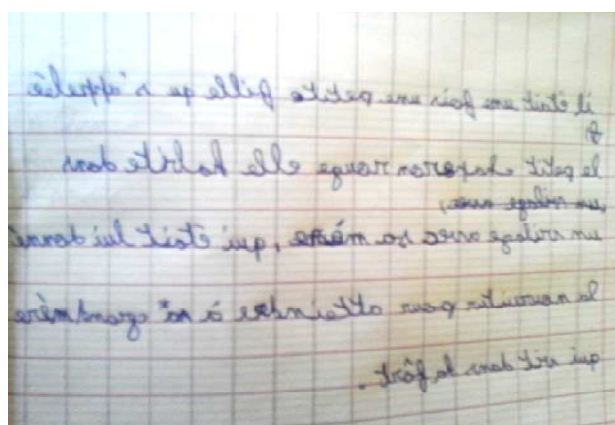 il était une fois une petite fille qe s'appelée
le petit chaperon rouge elle habite dans
un vilage avec,
un vilage avec sa mére, qui était lui donné
la nouruitur pour attaindre à sa grandmère
qui vit dans la fôrt.